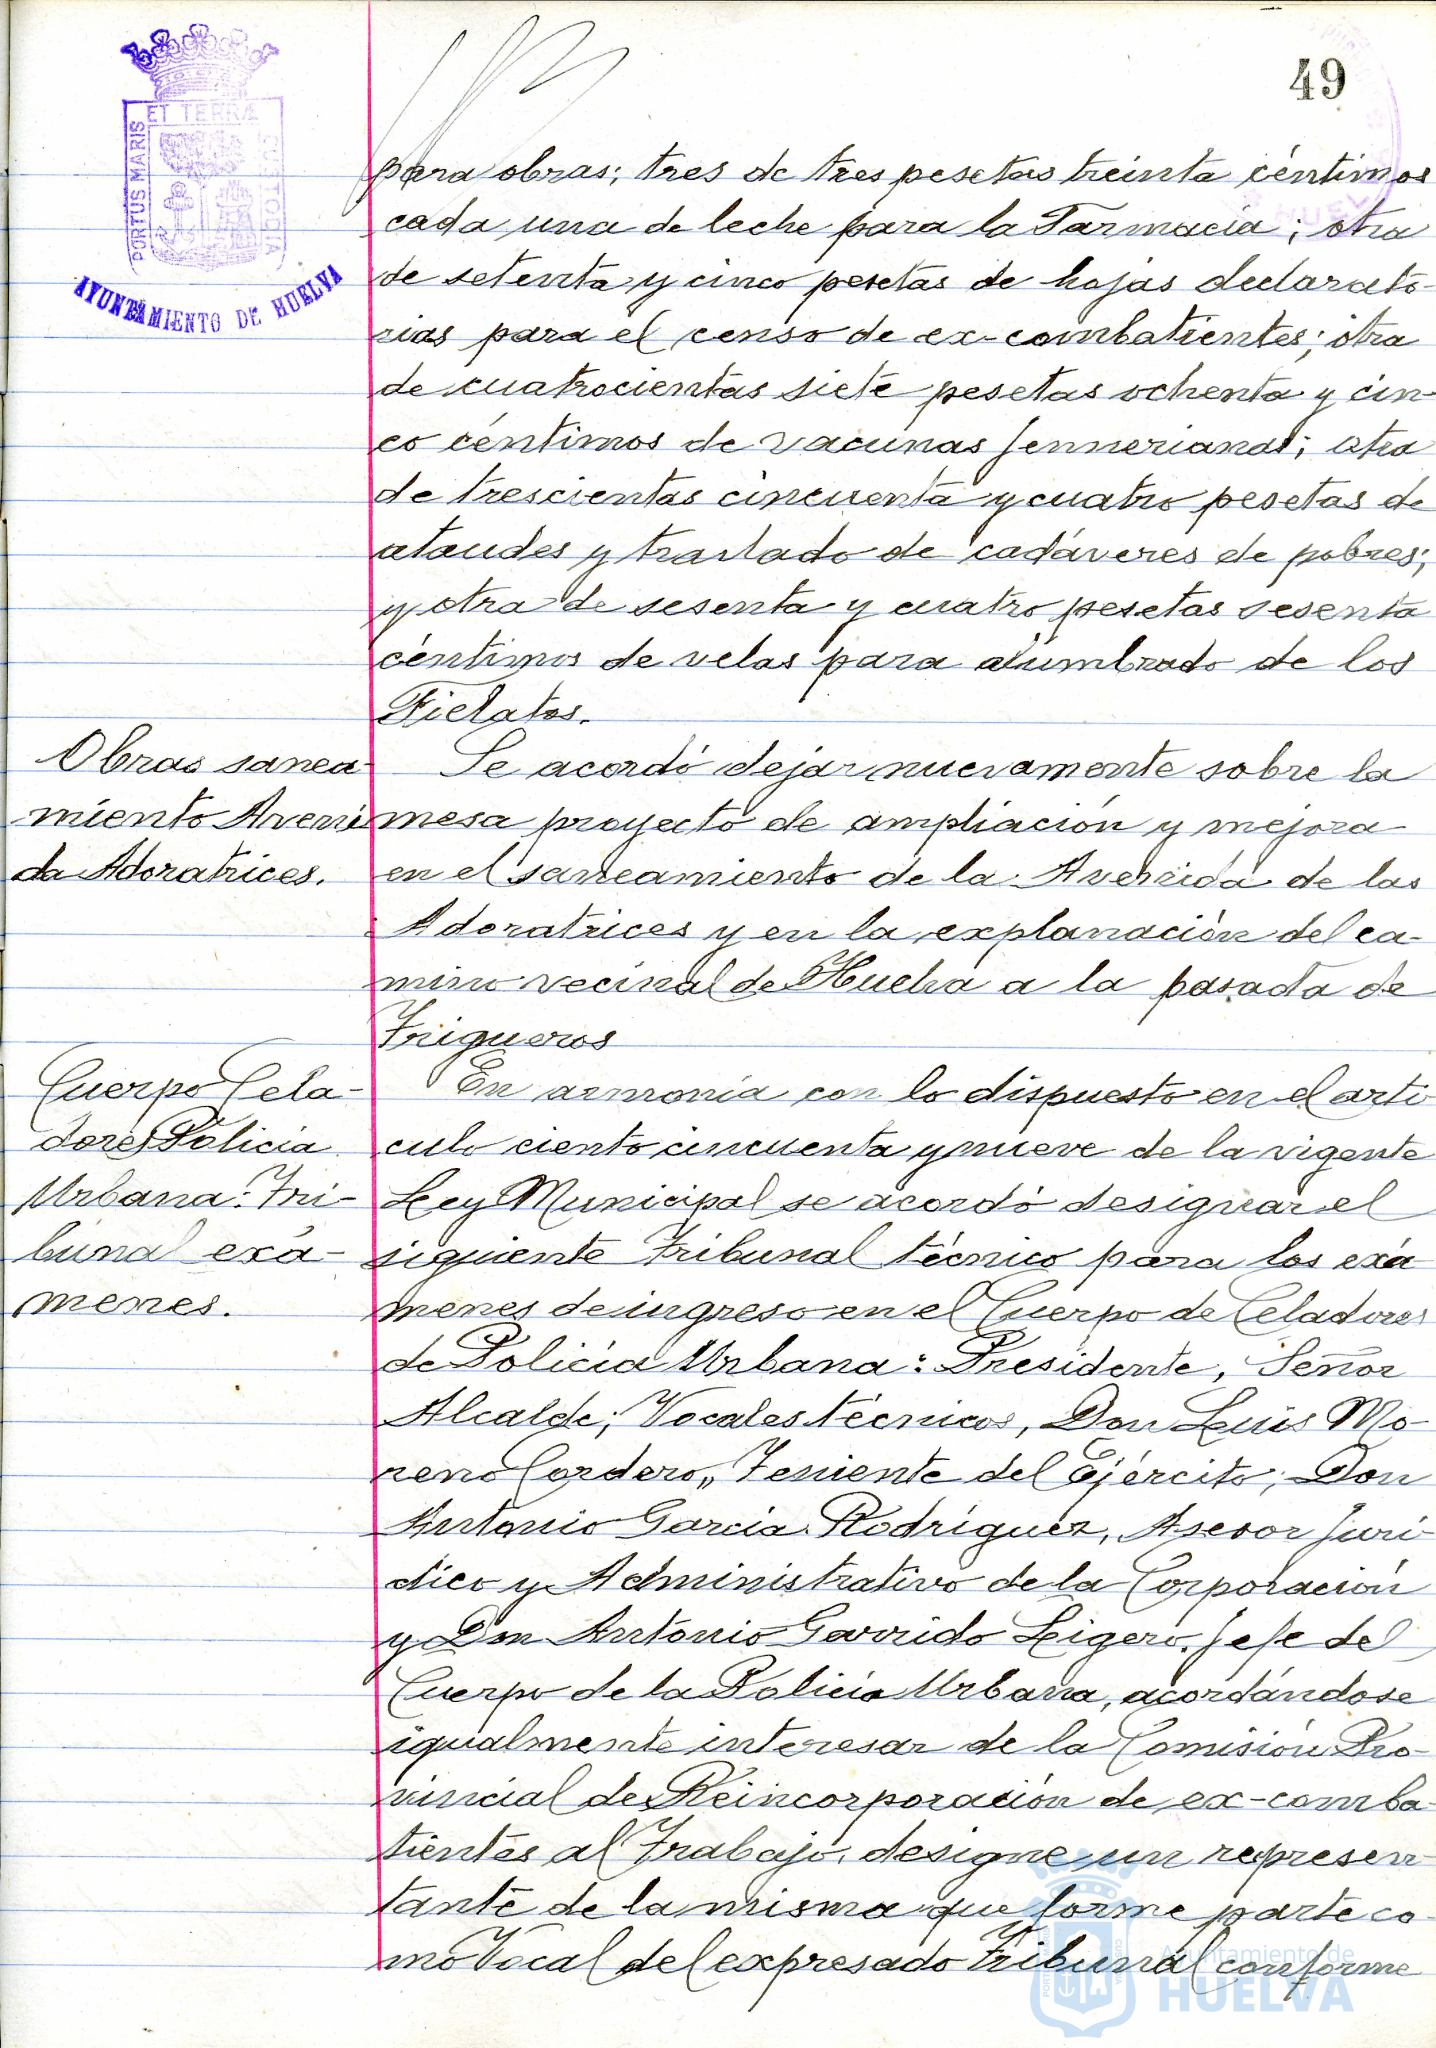 49
PORTUS MARIS
ET TERRÆ
CUSTODIA
AYUNTAMIENTO DE HUELVA
para obras; tres de tres pesetas treinta céntimos
cada una de leche para la Farmacia; otra
de setenta y cinco pesetas de hojas declarato-
rias para el censo de ex-combatientes; otra
de cuatrocientas siete pesetas ochenta y cin-
co céntimos de vacunas Jennerianas; otra
de trescientas cincuenta y cuatro pesetas de
ataudes y traslado de cadáveres de pobres;
y otra de sesenta y cuatro pesetas sesenta
céntimos de velas para alumbrado de los
Fielatos.
Obras sanea
miento Aveni
da Adoratrices.
Se acordó dejar nuevamente sobre la
mesa proyecto de ampliación y mejora
en el saneamiento de la Avenida de las
Adoratrices y en la explanación del ca-
mino vecinal de Huelva a la pasada de
Trigueros
Cuerpo Cela-
dores Policía
Urbana: Tri-
bunal exá-
menes.
En armonía con lo dispuesto en el artí
culo ciento cincuenta y nueve de la vigente
Ley Municipal se acordó designar el
siguiente Tribunal técnico para los exá
menes de ingreso en el Cuerpo de Celadores
de Policía Urbana: Presidente, Señor
Alcalde; Vocales técnicos, Don Luis Mo-
reno Cordero,, Teniente del Ejército; Don
Antonio García Rodríguez, Asesor Jurí-
dico y Administrativo de la Corporación
y Don Antonio Garrido Ligero, Jefe del
Cuerpo de la Policía Urbana, acordándose
igualmente interesar de la Comisión Pro-
vincial de Reincorporación de ex-comba-
tientes al Trabajo, designe un represen-
tante de la misma que forme parte co-
mo Vocal del expresado Tribunal conforme
Ayuntamiento de
HUELVA